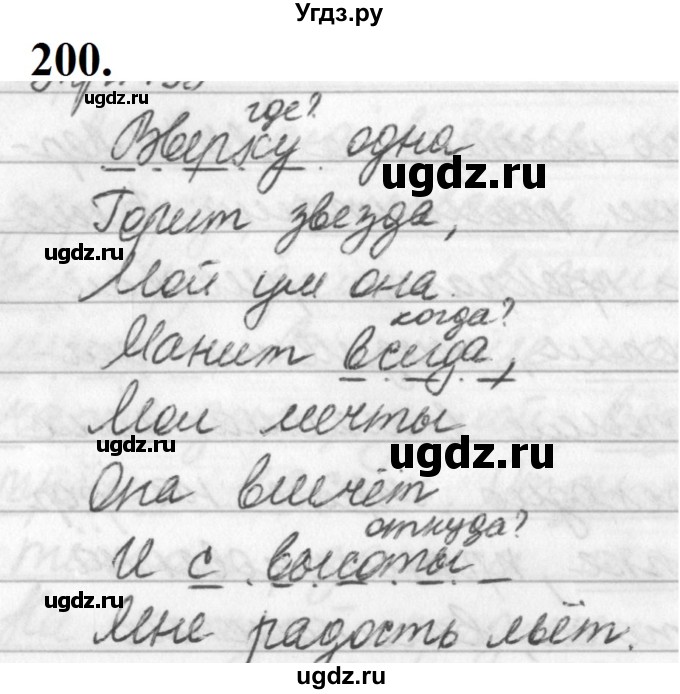 Угдз.ру
200.
ugdz.ru
где?
Вверху одна
ugdz.ru
Горит звезда,
ugdz.ru
Мой ум она
когда?
Манит всегда,
ugdz.ru
Мои мечты
ugdz.ru
ugdz.ru
Она влечёт
откуда?
И с высоты
ugdz.ru
Мне радость льёт.
ugdz.ru